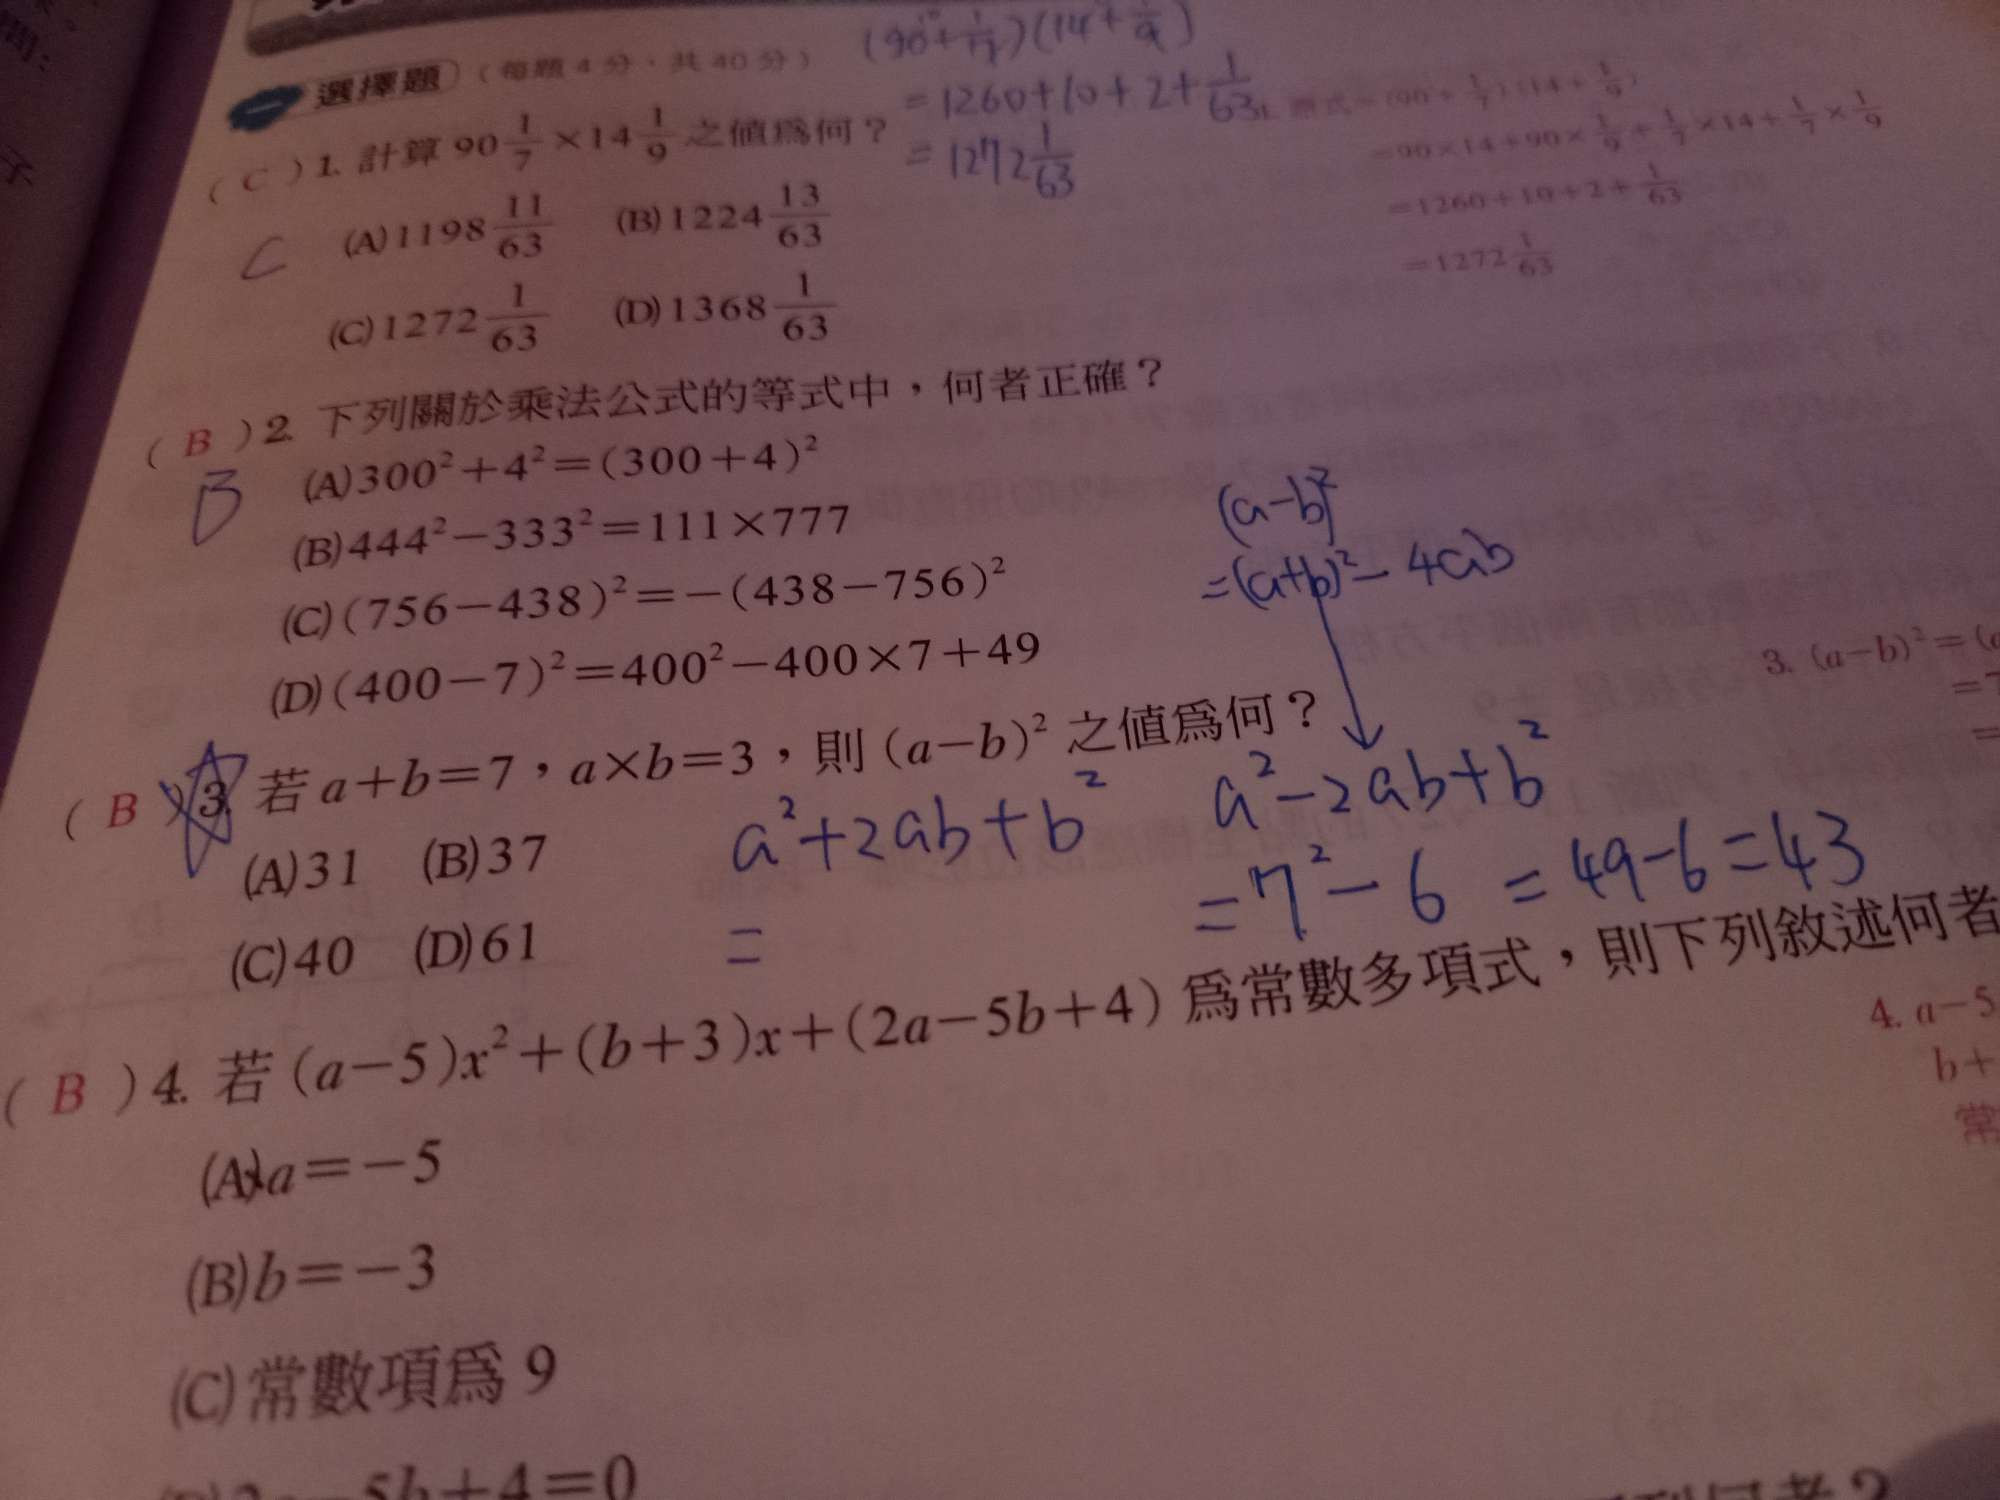 一 選擇題 (每題 4 分，共 40 分)
(90+1/7)(14+1/9)
=1260+10+2+1/63
=1272 1/63
( C ) 1. 計算 90 1/7 ×14 1/9 之值爲何？
C
(A)1198 11/63 (B)1224 13/63
(C)1272 1/63 (D)1368 1/63
1. 原式=(90+1/7)(14+1/9)
=90×14+90×1/9+1/7×14+1/7×1/9
=1260+10+2+1/63
=1272 1/63
( B ) 2. 下列關於乘法公式的等式中，何者正確？
B
(A)300²+4²=(300+4)²
(B)444²−333²=111×777
(C)(756−438)²=−(438−756)²
(D)(400−7)²=400²−400×7+49
(a−b)²
=(a+b)²−4ab
( B ) 3. 若 a+b=7，a×b=3，則 (a−b)² 之值爲何？
(A)31 (B)37
(C)40 (D)61
a²+2ab+b²
=
a²−2ab+b²
=7²−6 =49−6=43
3. (a−b)²=(
=7
=
( B ) 4. 若 (a−5)x²+(b+3)x+(2a−5b+4) 爲常數多項式，則下列敘述何者
(A)a=−5
(B)b=−3
(C)常數項爲 9
5b+4=0
4. a−5
b+
常
何者？